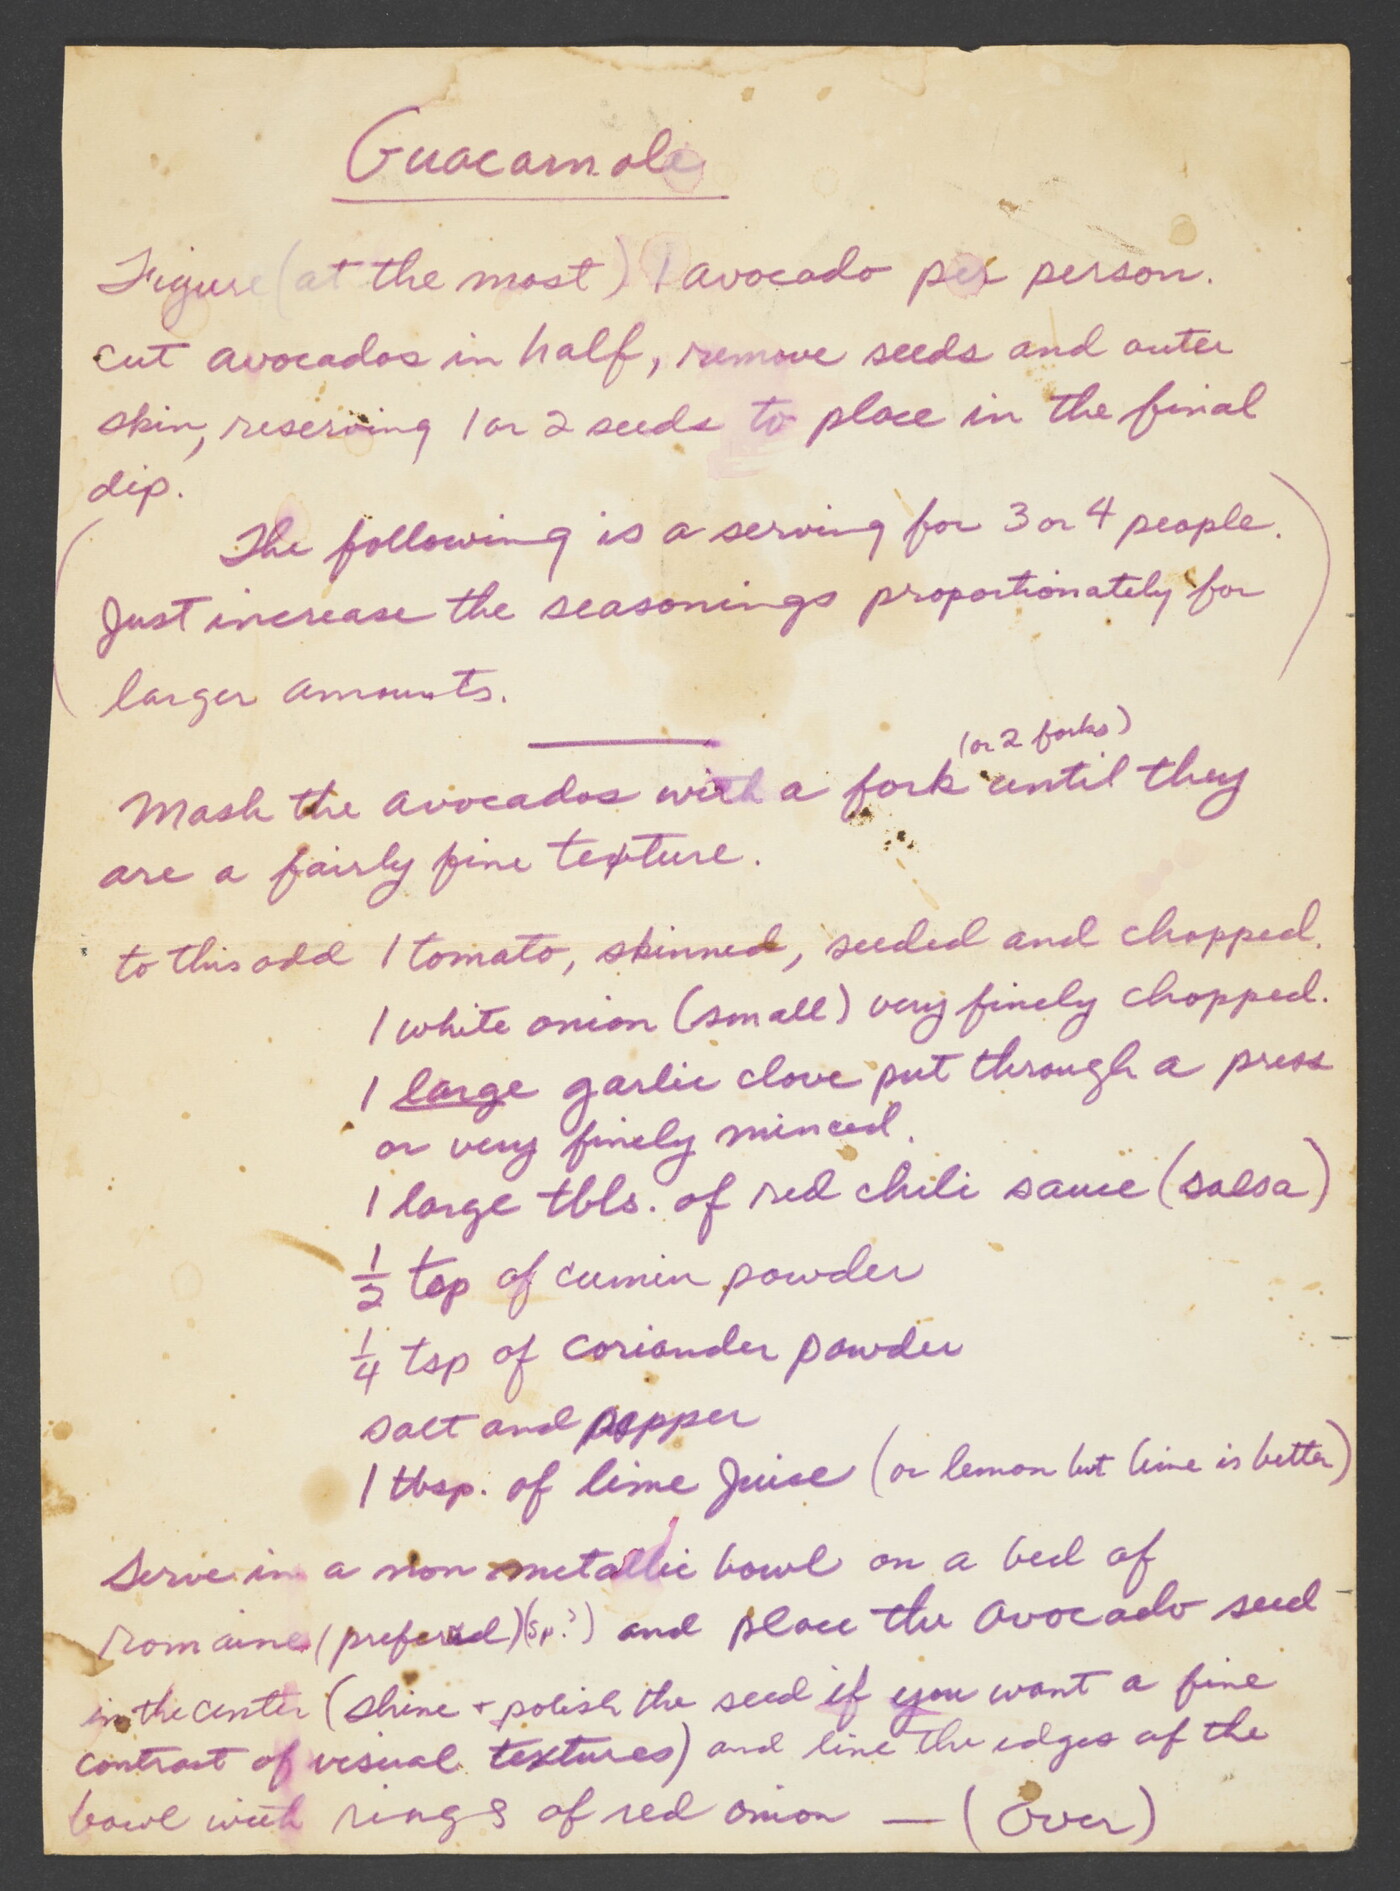 Guacamole
Figure (at the most) 1 avocado per person.
cut avocados in half, remove seeds and outer
skin, reserving 1 or 2 seeds to place in the final
dip.
(The following is a serving for 3 or 4 people.
Just increase the seasonings proportionately for
larger amounts.)
(or 2 forks)
Mash the avocados with a fork until they
are a fairly fine texture.
to this add 1 tomato, skinned, seeded and chopped.
1 white onion (small) very finely chopped.
1 large garlic clove put through a press
or very finely minced.
1 large tbls. of red chili sauce (salsa)
1/2 tsp of cumin powder
1/4 tsp of coriander powder
salt and pepper
1 tbsp. of lime Juice (or lemon but lime is better)
Serve in a non metallic bowl on a bed of
romaine (preferred) (sp?) and place the avocado seed
in the center (shine + polish the seed if you want a fine
contrast of visual textures) and line the edges of the
bowl with rings of red onion — (over)